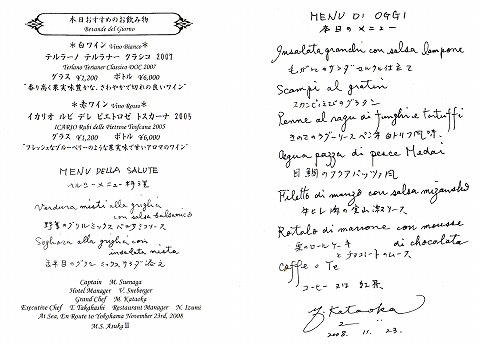 本日おすすめのお飲み物
Bevande del Giorno
＊白ワイン Vino Bianco＊
テルラーノ テルラナー クラシコ 2007
Terlano Terlaner Classico DOC 2007
グラス ¥1,200 ボトル ¥6,000
"香り高く果実味豊かな、さわやかで切れの良いワイン"
＊赤ワイン Vino Rosso＊
イカリオ ルビ デレ ピエトロゼ トスカーナ 2005
ICARIO Rubi delle Pietrose Toscana 2005
グラス ¥1,200 ボトル ¥6,000
"フレッシュなブルーベリーのような果実味で甘いアロマのワイン"
MENU DELLA SALUTE
ヘルシーメニュー料理
Verdura misti alla griglia
con salsa balsamico
野菜のグリル ミックス バルサミコソース
Sogliola alla griglia con
insalata mista
舌平目のグリル ミックスサラダ添え
Captain M. Suenaga
Hotel Manager V. Sneberger
Grand Chef M. Kataoka
Executive Chef T. Takahashi Restaurant Manager N. Izumi
At Sea, En Route to Yokohama November 23rd, 2008
M.S. Asuka II
MENU DI OGGI
本日のメニュー
Insalata granchi con salsa lampone
毛がにのサラダ 仕立て
Scampi al gratin
スカンピえびのグラタン
Penne al ragu di funghi e tartuffi
きのこのラグーソース ペンネ 白トリフ風味
Acqua pazza di pesce Medai
目鯛のアクアパッツァ風
Filetto di manzo con salsa
牛ヒレ肉の ソース
Rotolo di marrone con mousse
di chocolata
栗のロールケーキ
とチョコレートのムース
Caffe o Te
コーヒー 又は 紅茶
Y. Kataoka
2008. 11. 23.